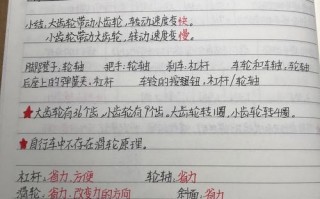 小结：大齿轮带动小齿轮，转动速度变快。
小齿轮带动大齿轮，转动速度变慢。
脚踏登子，轮轴 把手：轮轴 刹车：杠杆 车轮和车轴：轮轴
后座上的弹簧夹：杠杆 车铃的按钮，杠杆/轮轴
★大齿轮有36个齿，小齿轮有9个齿。大齿轮转1圈，小齿轮转4圈。
★自行车中不存在滑轮原理。
杠杆：省力，方便 轮轴：省力
滑轮：省力，改变力的方向 斜面：省力